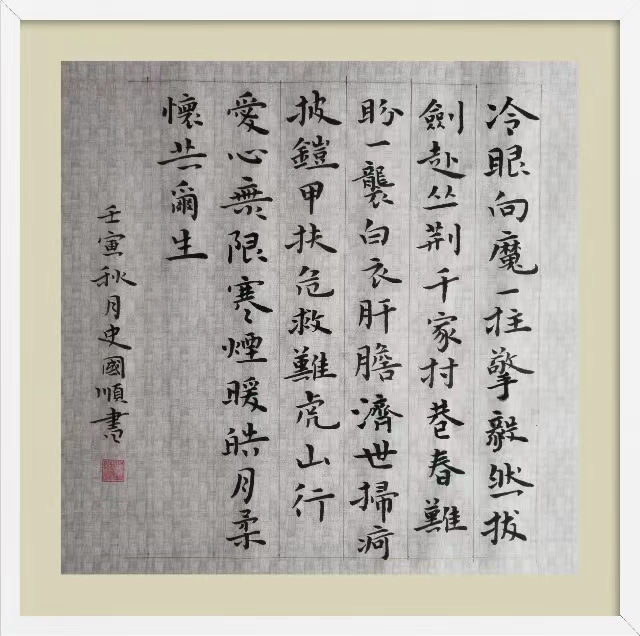 冷眼向魔一柱擎毅然拔
劍赴丛荆千家村巷春難
盼一襲白衣肝膽濟世掃疴
披鎧甲扶危救難虎山行
愛心無限寒煙暖皓月柔
懷共爾生
壬寅秋月史國順書